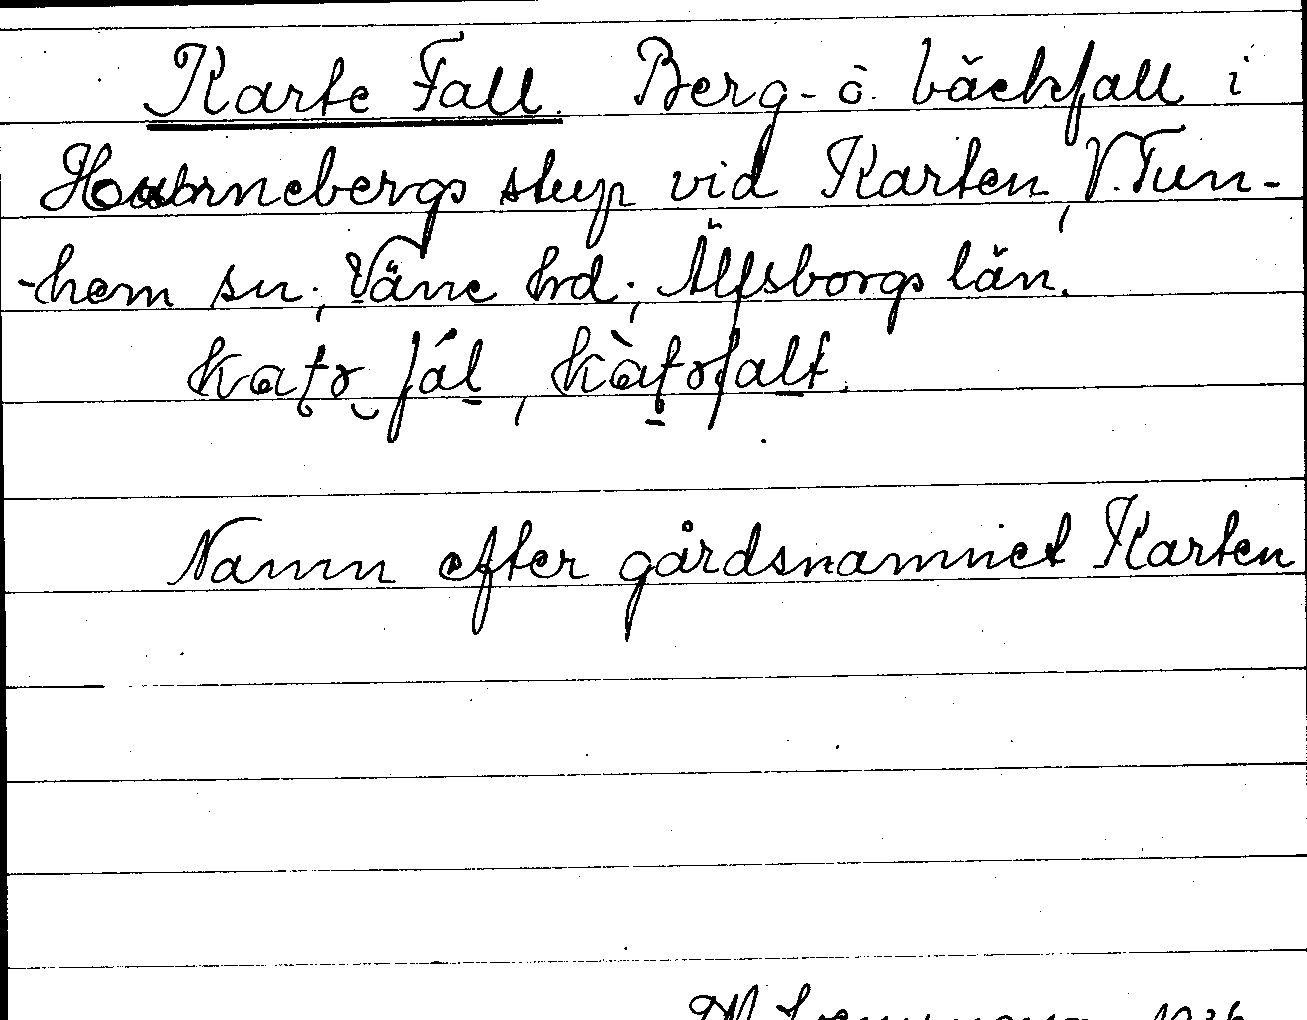 Karte Fall. Berg- o. bäckfall i
Hunnebergs stup vid Karten, V. Tun-
-hem sn; Väne hd; Älfsborgs län.
Namn efter gårdsnamnet Karten